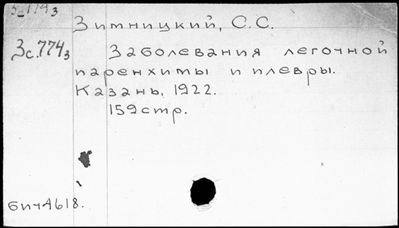 Зимницкий, С.С.
Зс.774₃ Заболевания легочной
паренхимы и плевры.
Казань, 1922.
159стр.
бич4618.